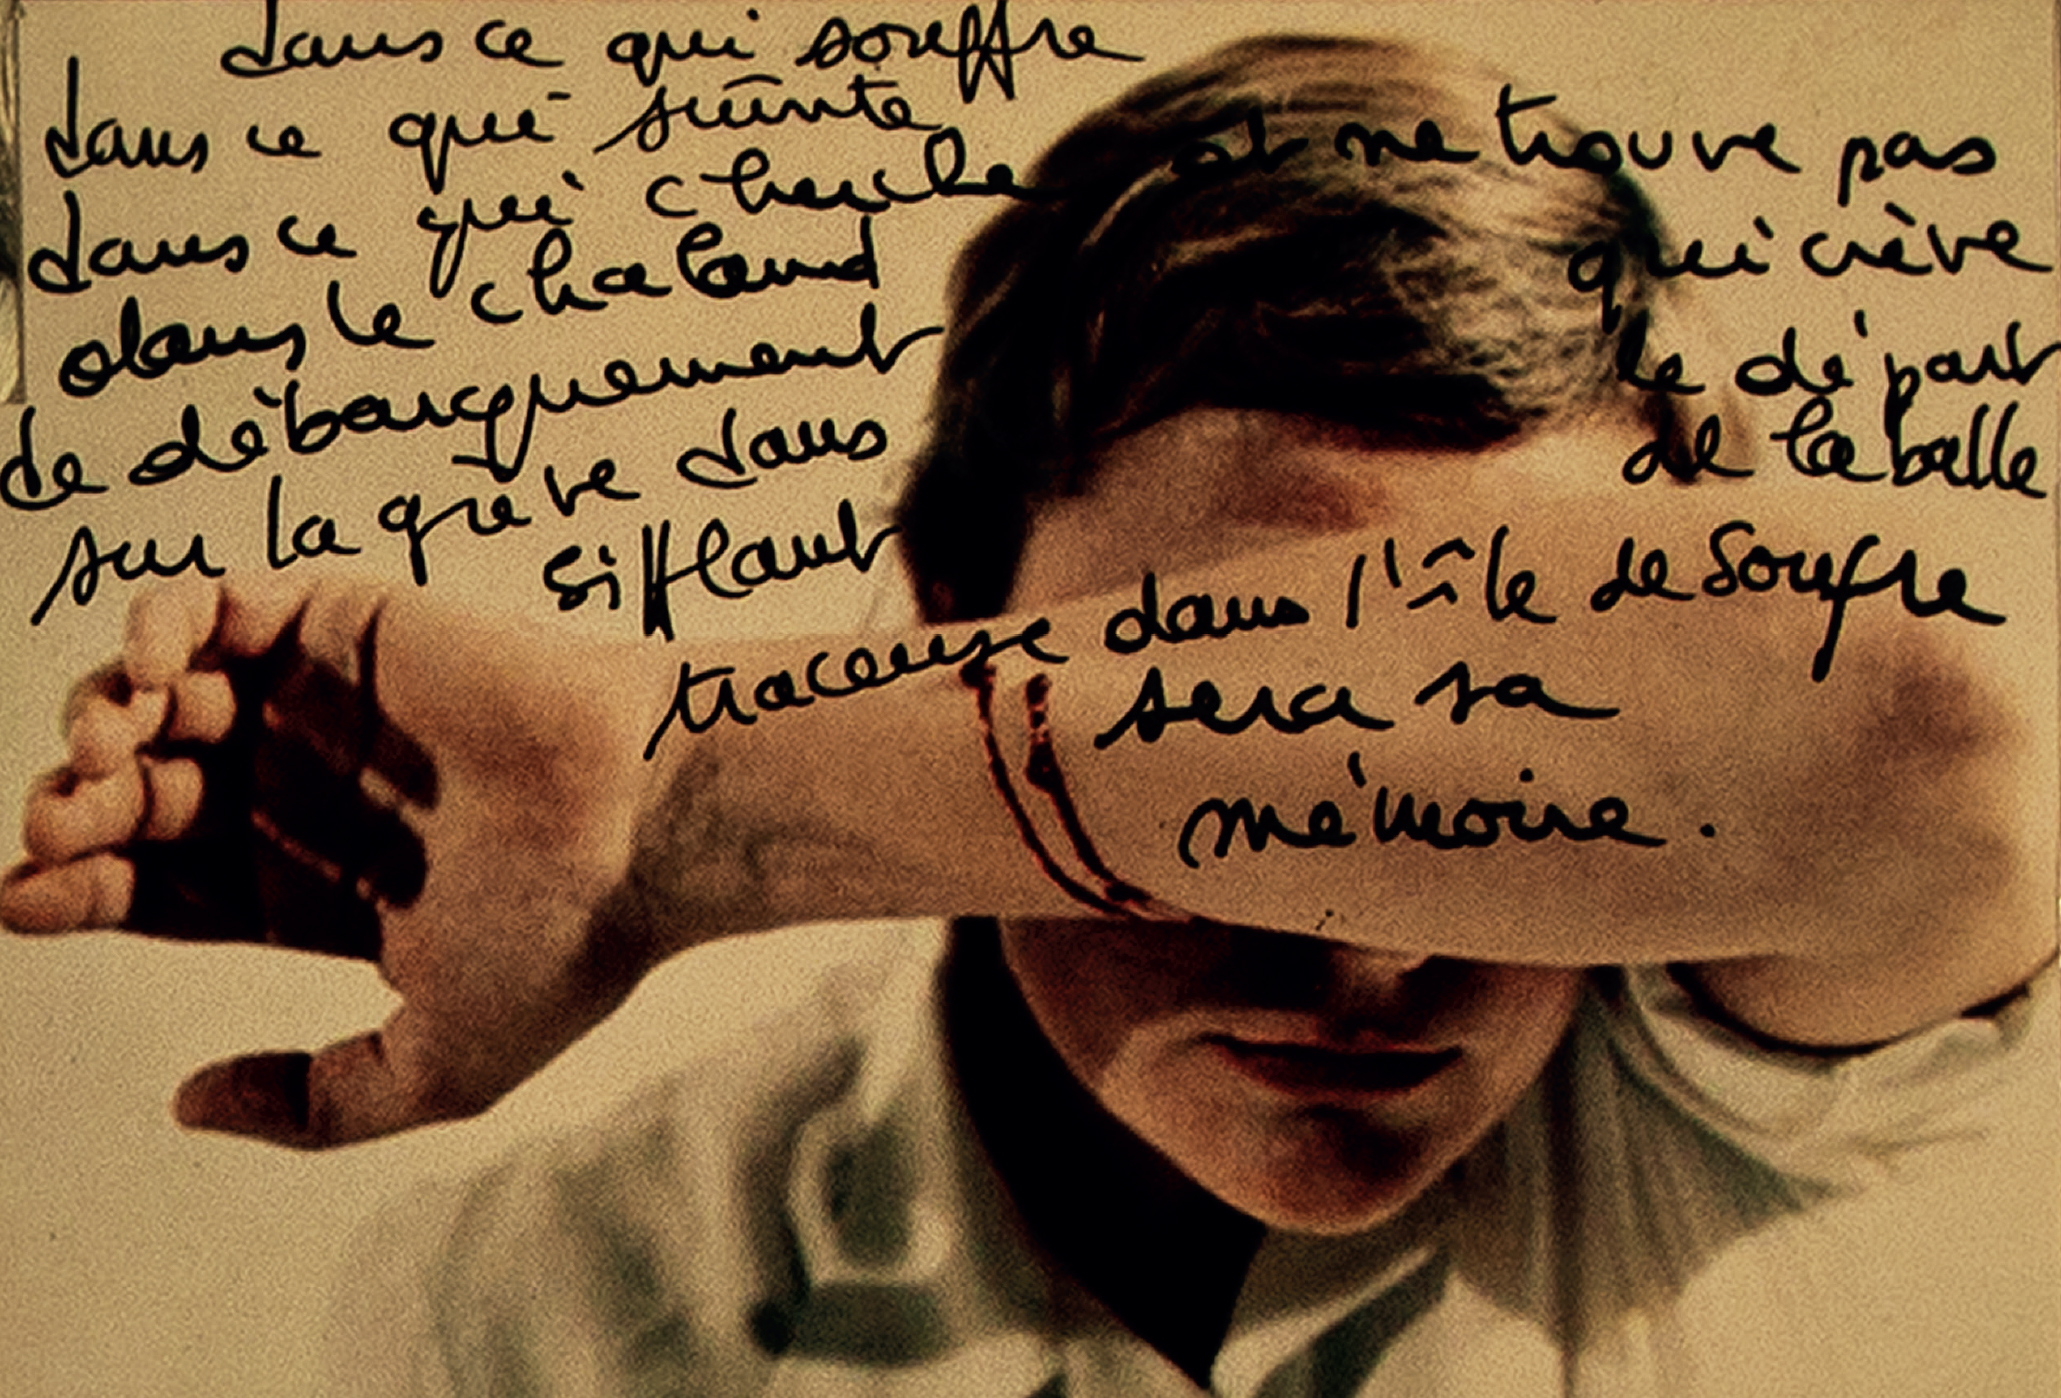 dans ce qui souffre
dans ce qui suinte
dans ce qui cherche et ne trouve pas
dans le chaland qui crève
de débarquement
sur la grève dans
sifflant
le départ
de la balle
traceuse dans l'île de Soufre
sera sa
mémoire.